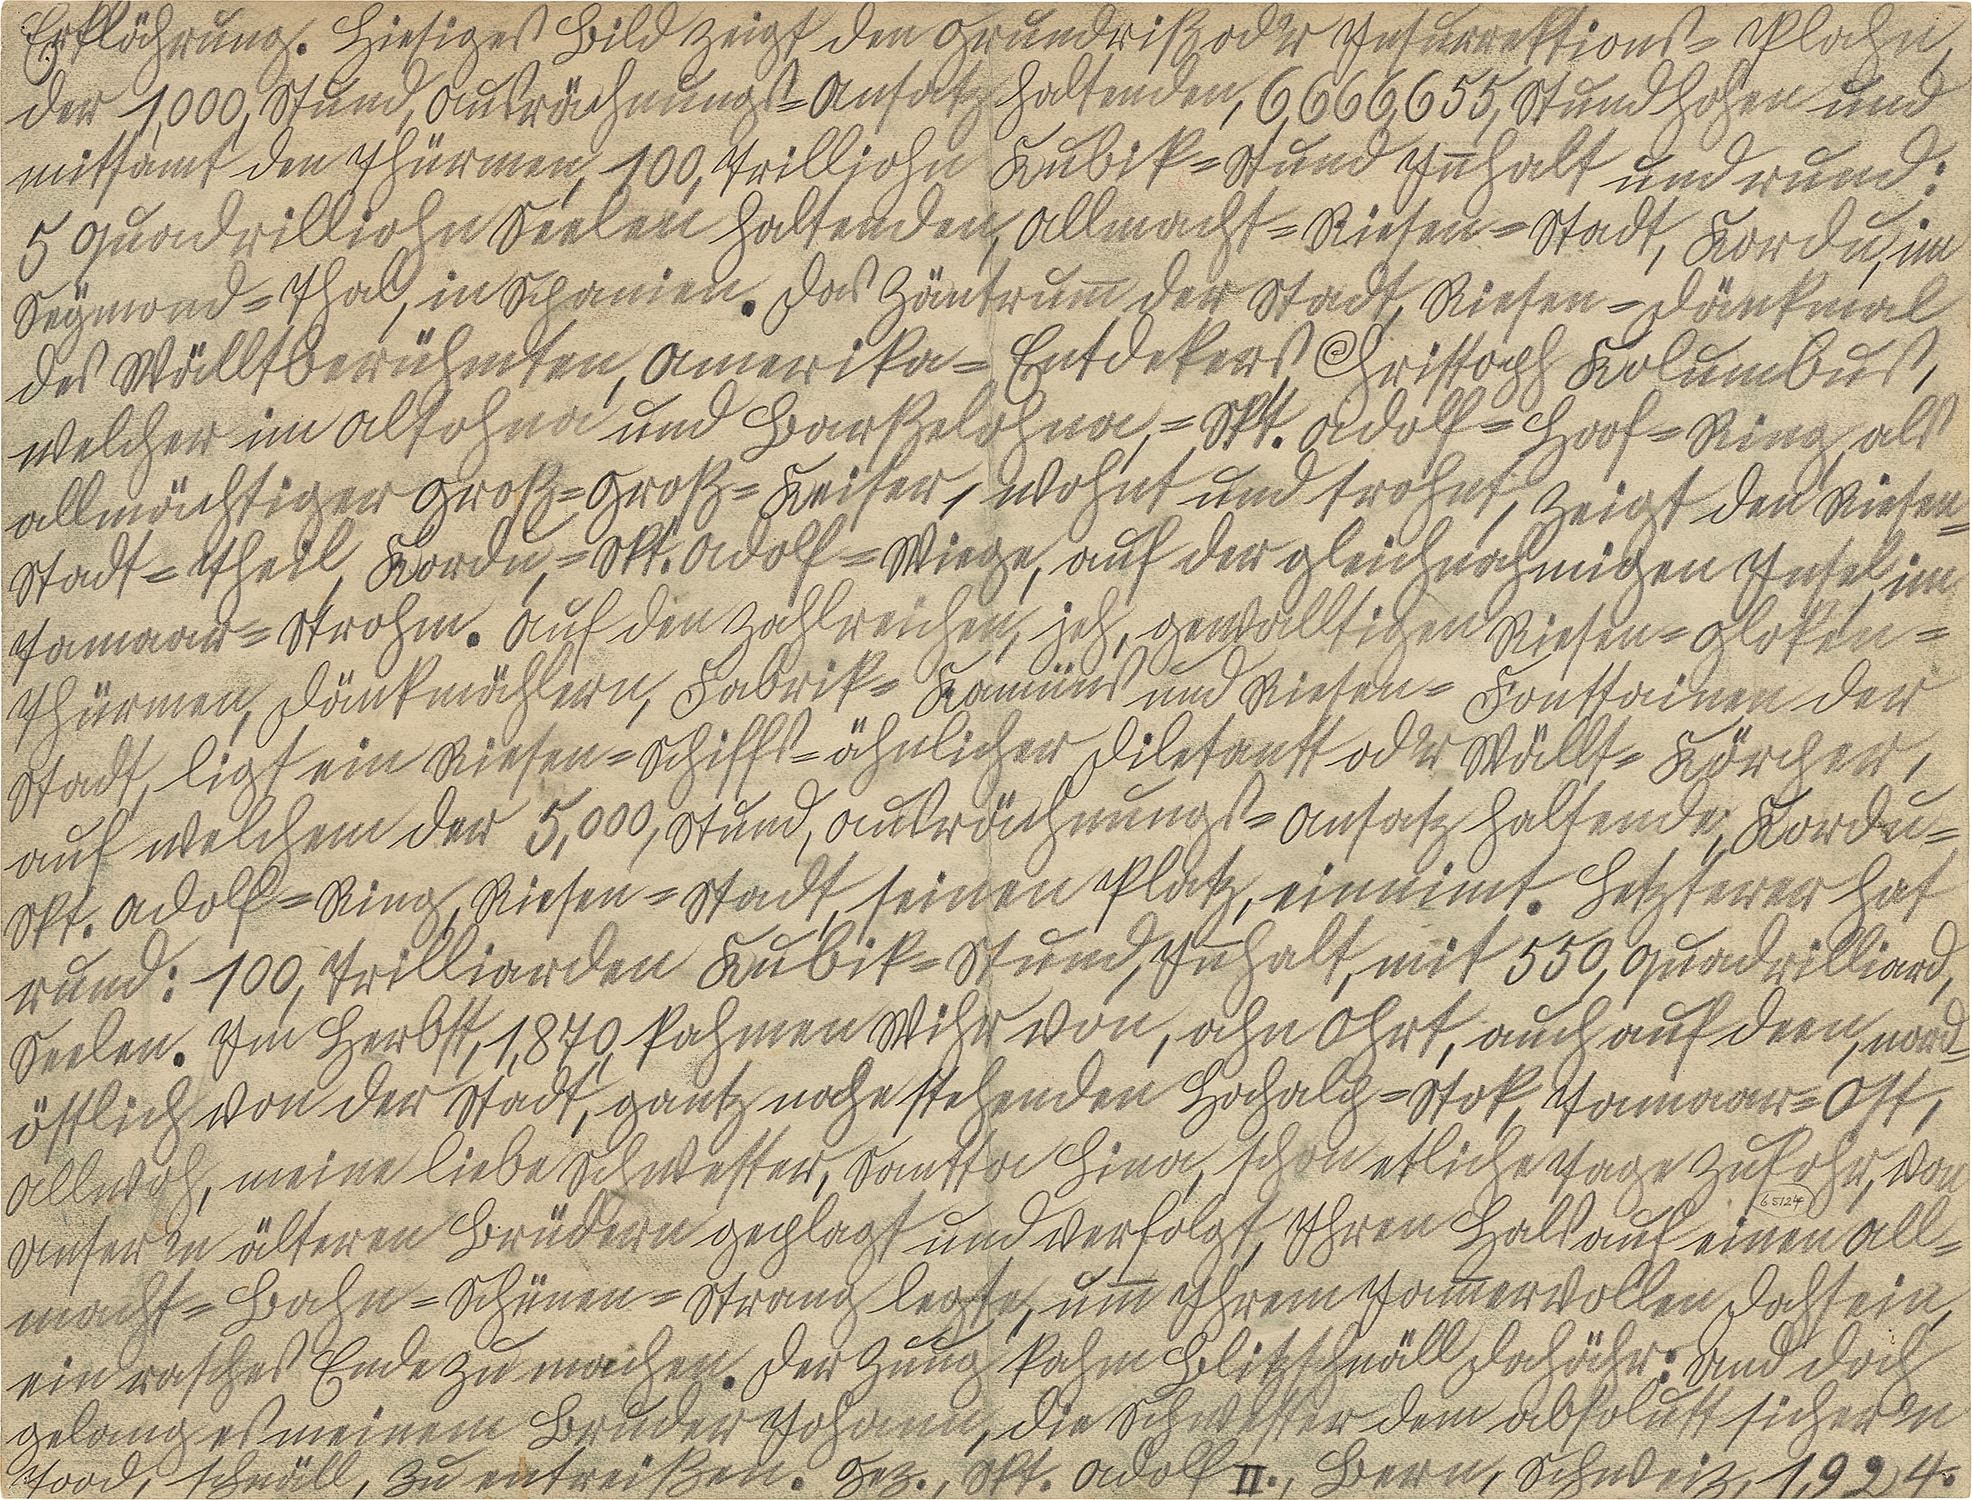 Erklährung. Hiesiges Bild zeigt den Grundriß od'r Insurrektions=Plahn,
der 1,000, Stund, Ausrächnungs=Ansatz haltenden, 6,666,655, Stund hohen und
mitsamt den Thürmen, 100, Trilliohn Kubik=Stund Iñhalt und rund:
5 Quadrilliohn Seelen haltenden, Allmacht=Riesen=Stadt, Kordu, im
Segmond=Thal, in Spanien. Das Zäntrum̄ der Stadt, Riesen=Dänkmal
des Wälltberühmten, Amerika=Entdekers Christoph Kolumbus,
welcher im Altohna und Barßelohna,=Skt. Adolf=Hoof=Ring, als
allmächtiger Groß=Groß=Keiser, wohnt und trohnt, zeigt den Riesen=
Stadt=Theil, Kordu,=Skt. Adolf=Wiege, auf der gleichnahmigen Insel im
Jamaar=Strohm. Auf den zahlreichen, jeh, gewalltigen Riesen=Gloken=
Thürmen, Dänkmählern, Fabrik=Kamüns und Riesen=Fonttainen der
Stadt, ligt ein Riesen=Schiffs=ähnlicher Diletantt od'r Wällt=Körcher,
auf welchem der 5,000, Stund, Ausrächnungs=Ansatz haltende, Kordu=
Skt. Adolf=Ring, Riesen=Stadt, seinen Platz, einnimt. Letzterer hat
rund: 100, Trilliarden Kubik=Stund, Iñhalt, mit 550, Quadrilliard,
Seelen. Im Herbst, 1,870, kahmen Wihr von, ahn Ohrt, auch auf deen, nord=
östlich von der Stadt, gantz nahe stehenden Hochalp=Stok, Jamaar=Ost,
allwoh, meine liebe Schwester, Santta Lina, schon etliche Tage zufohr, von
unser'n älteren Brüdern geplagt und verfolgt, Ihren Hals auf einen All=
macht=Bahn=Schünen=Strang legte, um̄ Ihrem Jam̄ervollen Dahsein,
ein rasches Ende zu machen. Der Zuug kahm Blitzschnäll dahähr: Und doch
gelang es meinem Bruder Johann, die Schwester dem absolutt sicher'n
Tood, schnäll, zu entreißen. Gez., Skt. Adolf II., Bern, Schweiz, 1,924.